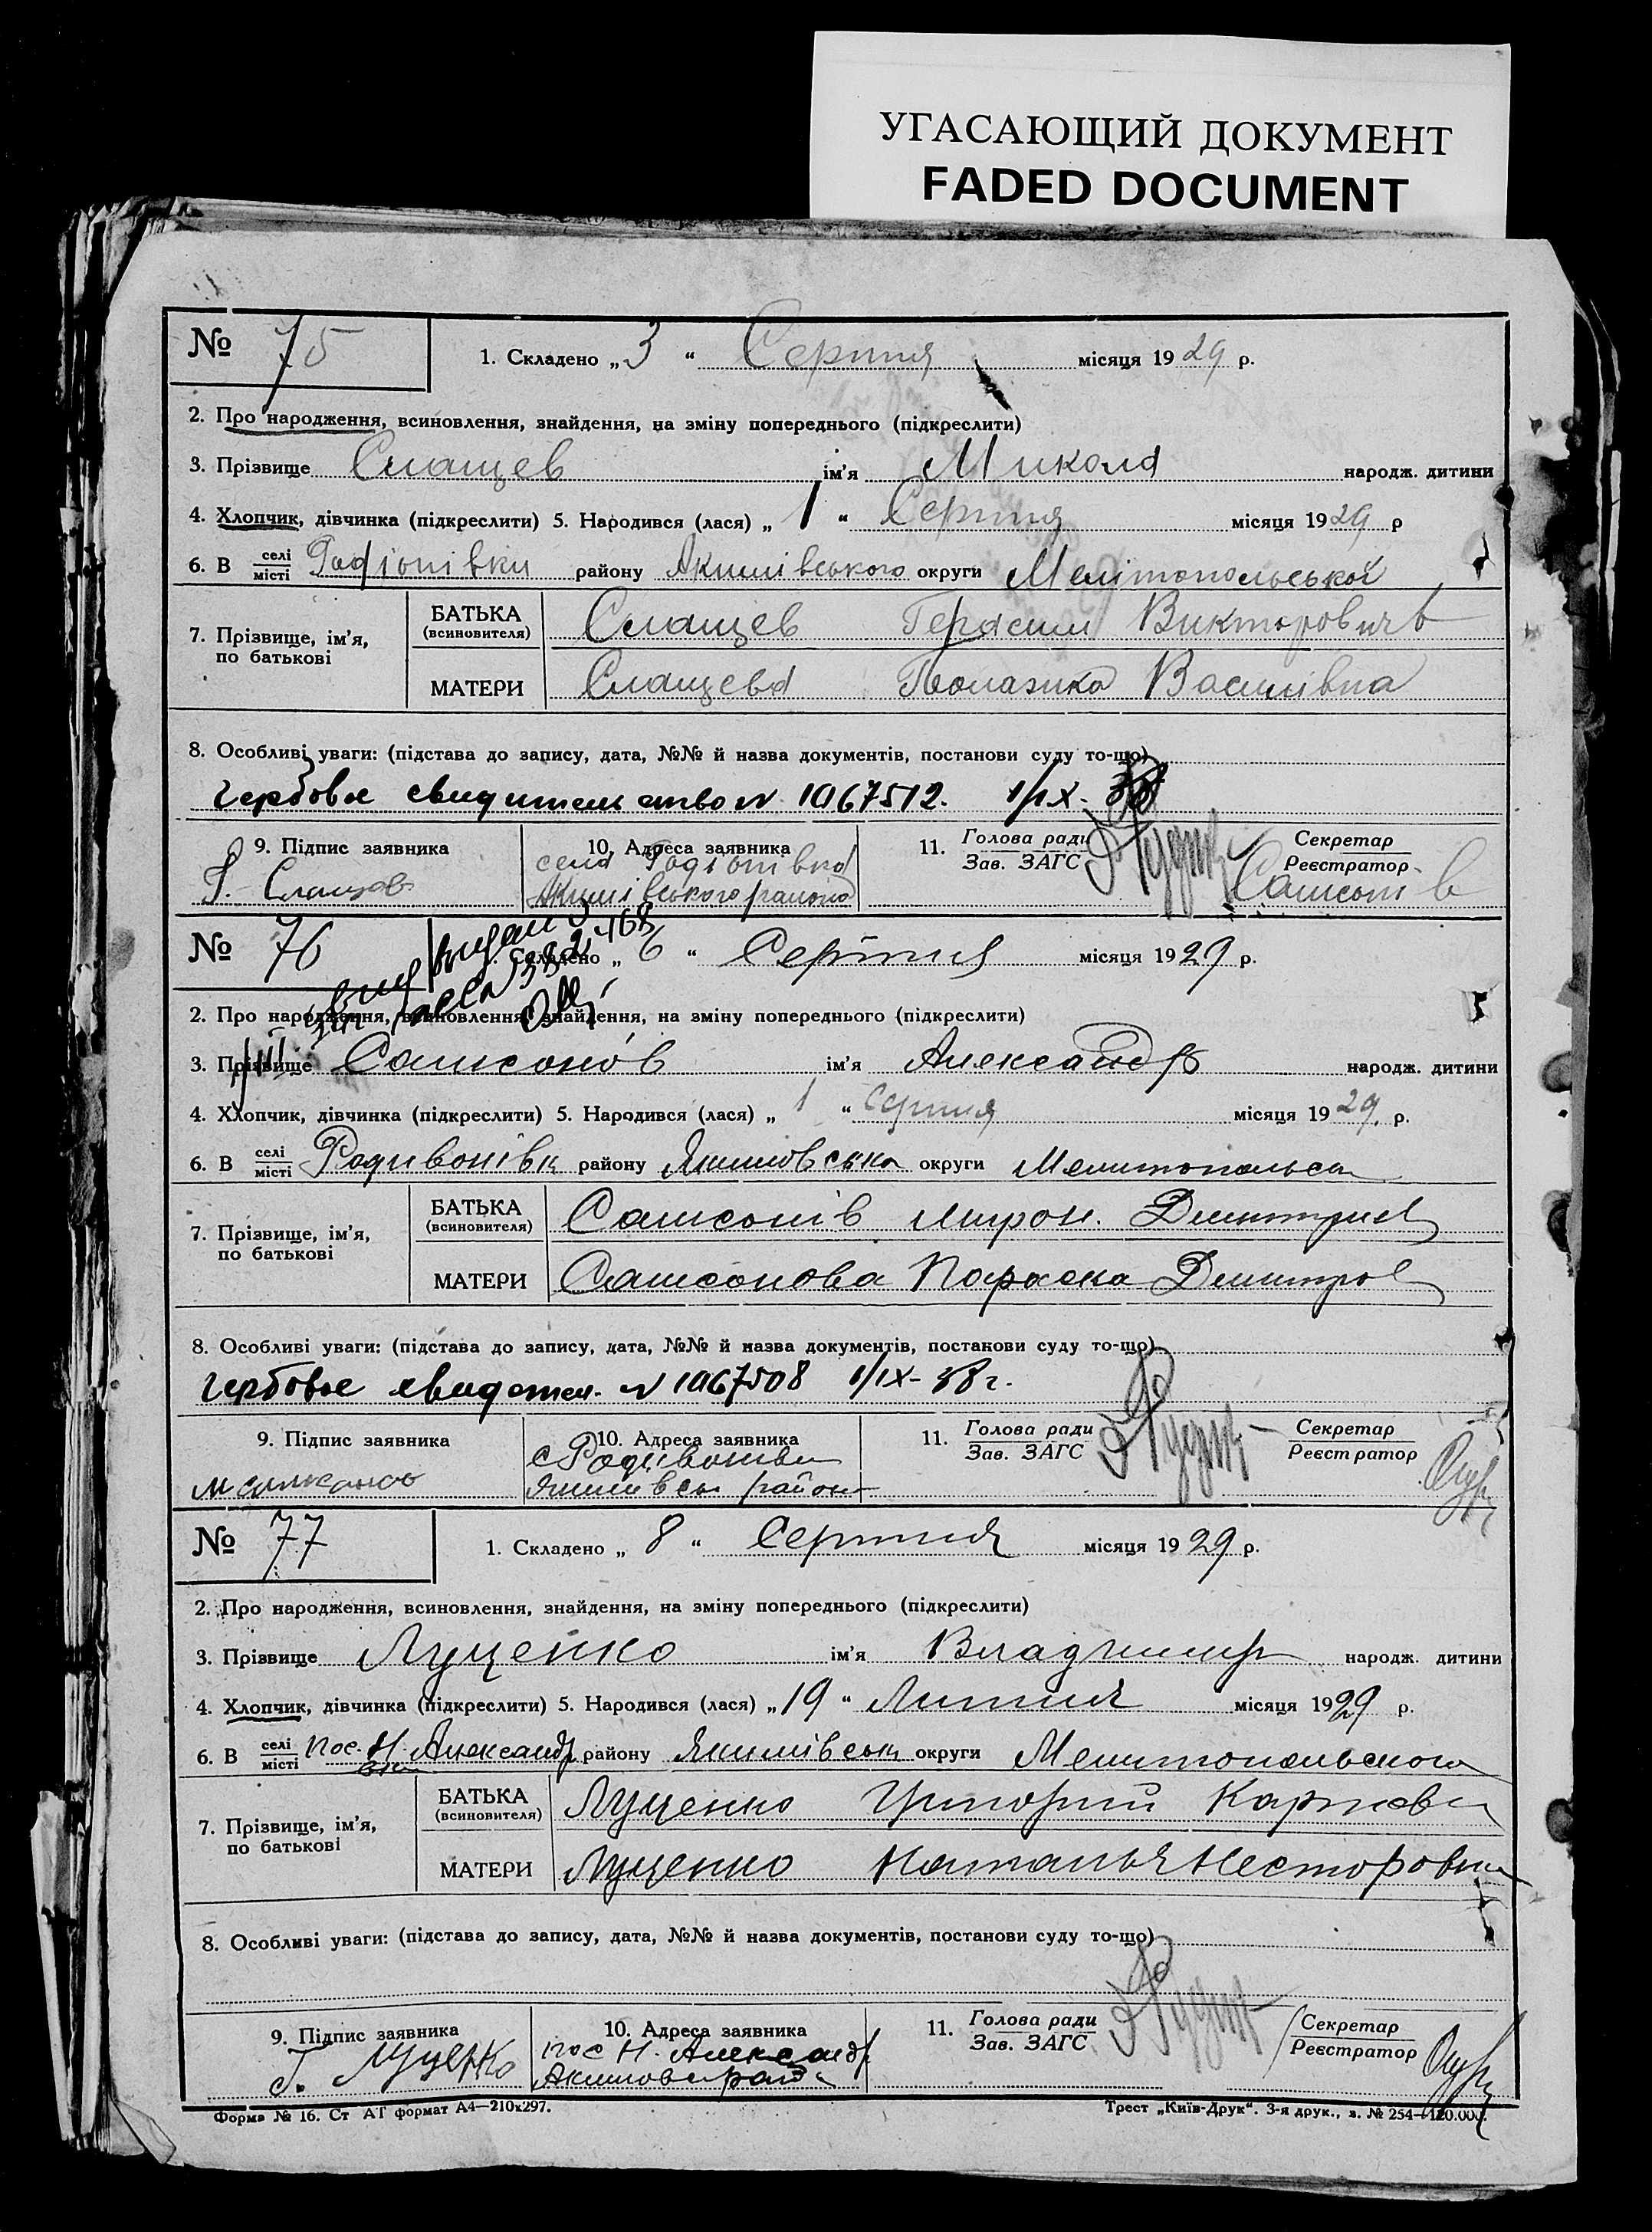 УГАСАЮЩИЙ ДОКУМЕНТ
FADED DOCUMENT
№ 75 1. Складено „ 3 “ Серпня місяця 1929 р.
2. Про народження, всиновлення, знайдення, на зміну попереднього (підкреслити)
3. Прізвище Слащев ім'я Микола народж. дитини
4. Хлопчик, дівчинка (підкреслити) 5. Народився (лася) „ 1 “ Серпня місяця 1929 р
6. В селі місті Радіонівки району Акимівського округи Мелітопольської
7. Прізвище, ім'я, по батькові
БАТЬКА (всиновителя) Слащев Герасим Викторович
МАТЕРИ Слащева Василівна
8. Особливі уваги: (підстава до запису, дата, №№ й назва документів, постанови суду то-що)
Гербовое свидительство N 1067512. 1/IX- 38
9. Підпис заявника 10. Адреса заявника 11. Голова ради Зав. ЗАГС Секретар Реєстратор
Г. Слащов села Радіонівка Акимівського района Самсонів
№ 76 1. Складено „ 6 “ Серпня місяця 1929 р.
2. Про народження, всиновлення, знайдення, на зміну попереднього (підкреслити)
3. Прізвище Самсонов ім'я Александр народж. дитини
4. Хлопчик, дівчинка (підкреслити) 5. Народився (лася) „ 1 “ серпня місяця 1929. р.
6. В селі місті Родивонівк району Якимовська округи Мелитопольск
7. Прізвище, ім'я, по батькові
БАТЬКА (всиновителя) Самсонів Мирон. Дмитриев
МАТЕРИ Самсонова Параска Дмитров
8. Особливі уваги: (підстава до запису, дата, №№ й назва документів, постанови суду то-що)
Гербовое свидетел. N 1067508 1/IX- 38 г.
9. Підпис заявника 10. Адреса заявника 11. Голова ради Зав. ЗАГС Секретар Реєстратор
с Родивонівки
район
№ 77 1. Складено „ 8 “ Серпня місяця 1929 р.
2. Про народження, всиновлення, знайдення, на зміну попереднього (підкреслити)
3. Прізвище Луценко ім'я Владимир народж. дитини
4. Хлопчик, дівчинка (підкреслити) 5. Народився (лася) „ 19 “ Липня місяця 1929 р.
6. В селі місті пос. Н. Александр району Якимівськ округи Мелитопольского
7. Прізвище, ім'я, по батькові
БАТЬКА (всиновителя) Луценко Григорий
МАТЕРИ Луценко Наталья Несторовна
8. Особливі уваги: (підстава до запису, дата, №№ й назва документів, постанови суду то-що)
9. Підпис заявника 10. Адреса заявника 11. Голова ради Зав. ЗАГС Секретар Реєстратор
Г. Луценко пос Н. Александр
Форма № 16. Ст АТ формат А4—210x297. Трест „Київ-Друк“. 3-я друк., з. № 254—120.000.